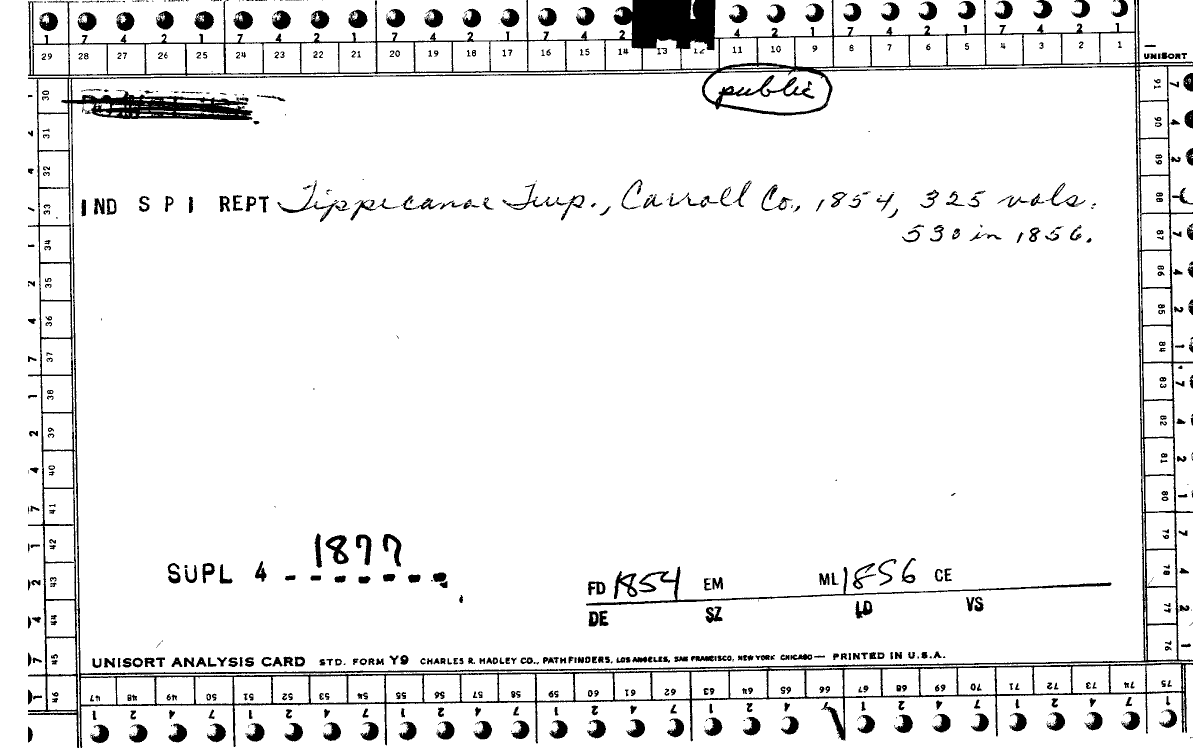 1 7 4 2 1 7 4 2 1 7 4 2 1 7 4 2 4 2 1 7 4 2 1 7 4 2 1
29 28 27 26 25 24 23 22 21 20 19 18 17 16 15 14 13 12 11 10 9 8 7 6 5 4 3 2 1
UNISORT
public
IND S P I REPT Tippecanoe Twp., Carroll Co., 1854, 325 vols.
530 in 1856.
1877
SUPL 4 - - - - - - -
FD 1854 EM ML 1856 CE
DE SZ LD VS
UNISORT ANALYSIS CARD STD. FORM Y9 CHARLES R. HADLEY CO., PATHFINDERS, LOS ANGELES, SAN FRANCISCO, NEW YORK CHICAGO — PRINTED IN U.S.A.
30 31 32 33 34 35 36 37 38 39 40 41 42 43 44 45 46
91 90 89 88 87 86 85 84 83 82 81 80 79 78 77 76
47 48 49 50 51 52 53 54 55 56 57 58 59 60 61 62 63 64 65 66 67 68 69 70 71 72 73 74 75
1 2 4 7 1 2 4 7 1 2 4 7 1 2 4 7 1 2 4 7 1 2 4 7 1 2 4 7 1